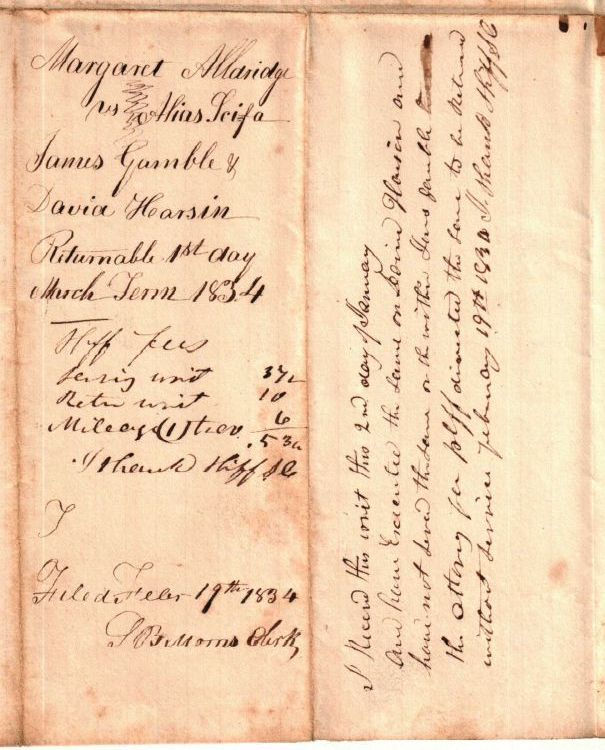 Margaret Alldridge
vs Alias Scifa
James Gamble &
David Harsin
Returnable 1st day
March Term 1834
Shff fees
Servig writ 37½
Retu writ 10
Mileage (1) trav 6
.53½
J Shank Shff JC
Filed Febr 19th 1834
S B Morris Clerk
I Recevd this writ this 2nd day of January
and have Executed the same on David Harsin and
have not served the same on the within Jams Gamble
the attorny for plff directed the same to be Returnd
without service February 19th 1834 J. Shank Shff JC